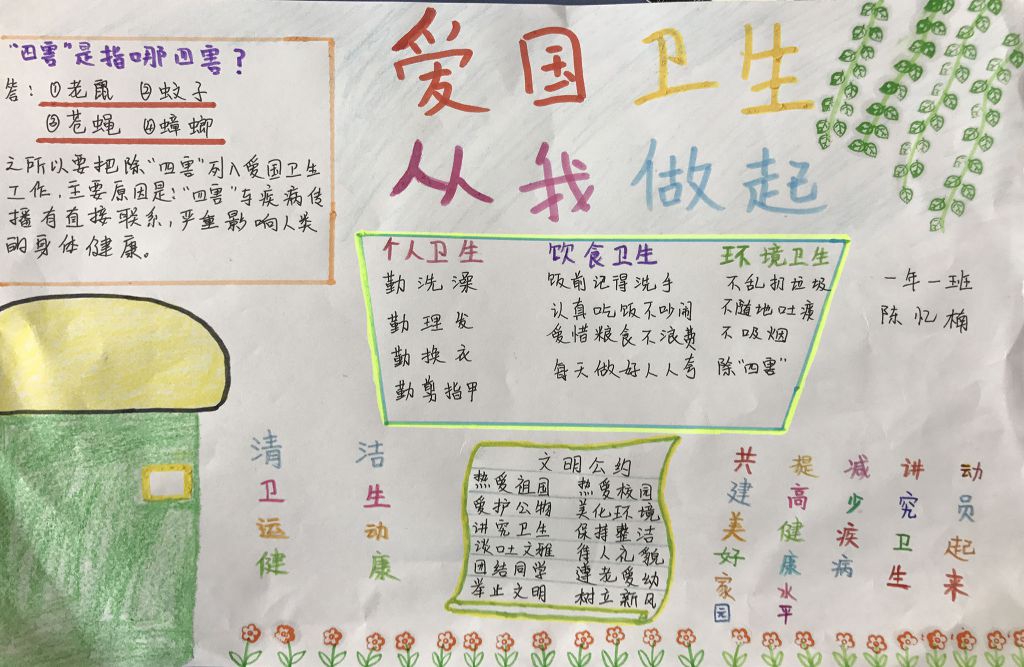 爱国卫生
从我做起
"四害"是指哪四害？
答：①老鼠 ②蚊子
③苍蝇 ④蟑螂
之所以要把除"四害"列入爱国卫生
工作，主要原因是："四害"与疾病传
播有直接联系，严重影响人类
的身体健康。
个人卫生
勤洗澡
勤理发
勤换衣
勤剪指甲
饮食卫生
饭前记得洗手
认真吃饭不吵闹
爱惜粮食不浪费
每天做好人人夸
环境卫生
不乱扔垃圾
不随地吐痰
不吸烟
除"四害"
一年一班
陈忆楠
清卫运健
洁生动康
文明公约
热爱祖国 热爱校园
爱护公物 美化环境
讲究卫生 保持整洁
谈吐文雅 待人礼貌
团结同学 尊老爱幼
举止文明 树立新风
动员起来
讲究卫生
减少疾病
提高健康水平
共建美好家园